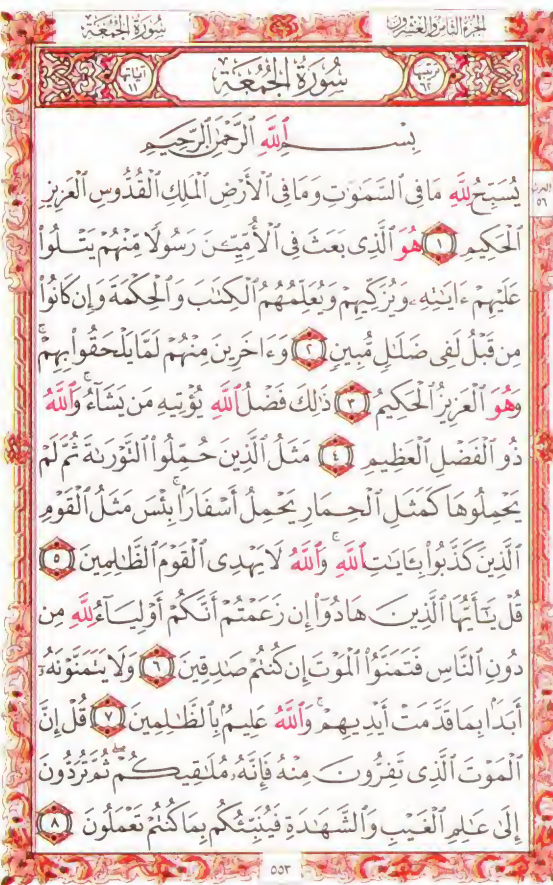 سُورَةُ الجُمُعَةِ
الجُزْءُ الثَّامِنُ وَالعِشْرُونَ
سُورَةُ الجُمُعَةِ
ترتيبها ٦٢
آياتها ١١
بِسْمِ ٱللَّهِ ٱلرَّحْمَٰنِ ٱلرَّحِيمِ
يُسَبِّحُ لِلَّهِ مَا فِى ٱلسَّمَٰوَٰتِ وَمَا فِى ٱلْأَرْضِ ٱلْمَلِكِ ٱلْقُدُّوسِ ٱلْعَزِيزِ
ٱلْحَكِيمِ ١ هُوَ ٱلَّذِى بَعَثَ فِى ٱلْأُمِّيِّـۧنَ رَسُولًا مِّنْهُمْ يَتْلُوا۟
عَلَيْهِمْ ءَايَٰتِهِۦ وَيُزَكِّيهِمْ وَيُعَلِّمُهُمُ ٱلْكِتَٰبَ وَٱلْحِكْمَةَ وَإِن كَانُوا۟
مِن قَبْلُ لَفِى ضَلَٰلٍ مُّبِينٍ ٢ وَءَاخَرِينَ مِنْهُمْ لَمَّا يَلْحَقُوا۟ بِهِمْ ۚ
وَهُوَ ٱلْعَزِيزُ ٱلْحَكِيمُ ٣ ذَٰلِكَ فَضْلُ ٱللَّهِ يُؤْتِيهِ مَن يَشَآءُ ۚ وَٱللَّهُ
ذُو ٱلْفَضْلِ ٱلْعَظِيمِ ٤ مَثَلُ ٱلَّذِينَ حُمِّلُوا۟ ٱلتَّوْرَىٰةَ ثُمَّ لَمْ
يَحْمِلُوهَا كَمَثَلِ ٱلْحِمَارِ يَحْمِلُ أَسْفَارًۢا ۚ بِئْسَ مَثَلُ ٱلْقَوْمِ
ٱلَّذِينَ كَذَّبُوا۟ بِـَٔايَٰتِ ٱللَّهِ ۚ وَٱللَّهُ لَا يَهْدِى ٱلْقَوْمَ ٱلظَّٰلِمِينَ ٥
قُلْ يَٰٓأَيُّهَا ٱلَّذِينَ هَادُوٓا۟ إِن زَعَمْتُمْ أَنَّكُمْ أَوْلِيَآءُ لِلَّهِ مِن
دُونِ ٱلنَّاسِ فَتَمَنَّوُا۟ ٱلْمَوْتَ إِن كُنتُمْ صَٰدِقِينَ ٦ وَلَا يَتَمَنَّوْنَهُۥٓ
أَبَدًۢا بِمَا قَدَّمَتْ أَيْدِيهِمْ ۚ وَٱللَّهُ عَلِيمٌۢ بِٱلظَّٰلِمِينَ ٧ قُلْ إِنَّ
ٱلْمَوْتَ ٱلَّذِى تَفِرُّونَ مِنْهُ فَإِنَّهُۥ مُلَٰقِيكُمْ ۖ ثُمَّ تُرَدُّونَ
إِلَىٰ عَٰلِمِ ٱلْغَيْبِ وَٱلشَّهَٰدَةِ فَيُنَبِّئُكُم بِمَا كُنتُمْ تَعْمَلُونَ ٨
٥٥٣